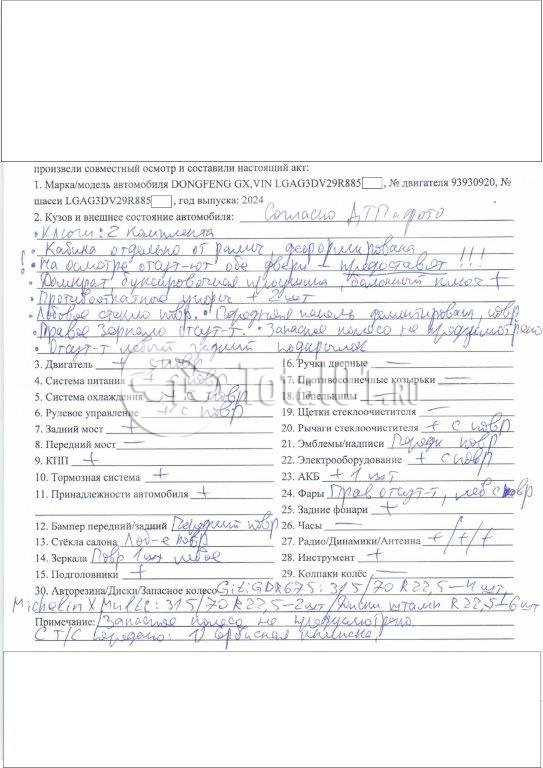 произвели совместный осмотр и составили настоящий акт:
1. Марка/модель автомобиля DONGFENG GX,VIN LGAG3DV29R885, № двигателя 93930920, №
шасси LGAG3DV29R885, год выпуска: 2024
2. Кузов и внешнее состояние автомобиля: Согласно ДТП и фото
• Ключи: 2 комплекта
• Кабина отдельно от рамы, деформирована
• На осмотре отсут-ют обе двери – предоставят !!!
• Домкрат буксировочная проушина балонный ключ +
• Противооткатные упоры + 2 шт
Лобовое стекло повр. • Передняя панель демонтирована, повр
• Правое зеркало отсут-т. • Запасное колесо не предусмотрено
• Отсут-т левый задний подкрылок
3. Двигатель + с повр
4. Система питания + повр
5. Система охлаждения повр
6. Рулевое управление + с повр
7. Задний мост +
8. Передний мост —
9. КПП +
10. Тормозная система +
11. Принадлежности автомобиля +
12. Бампер передний/задний Передний повр
13. Стёкла салона Лоб-е повр
14. Зеркала Повр 1 шт левое
15. Подголовники +
16. Ручки дверные —
17. Противосолнечные козырьки —
18. Пепельницы —
19. Щетки стеклоочистителя —
20. Рычаги стеклоочистителя + с повр
21. Эмблемы/надписи Передн повр
22. Электрооборудование + с повр
23. АКБ + 1 шт
24. Фары Прав отсут-т, лев с повр
25. Задние фонари +
26. Часы —
27. Радио/Динамики/Антенна +/+/+
28. Инструмент +
29. Колпаки колёс —
30. Авторезина/Диски/Запасное колесо GitiGDR675: 315/70 R22,5 – 4 шт,
Michelin X Multi: 315/70 R22,5 – 2 шт / Диски штамп R22,5 – 6 шт
Примечание: Запасное колесо не предусмотрено
С Т/С передано: 1) Сервисная книжка,
Total01.ru